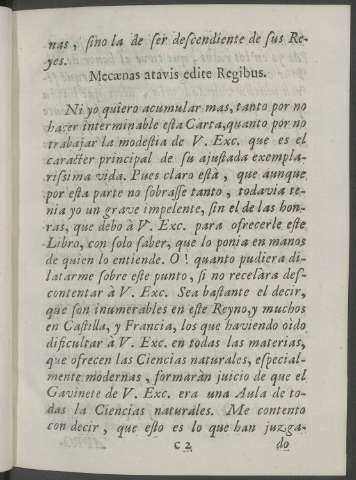 nas, ſino la de ſer deſcendiente de ſus Re-
yes.
Mecænas atavis edite Regibus.
Ni yo quiero acumular mas, tanto por no
hacer interminable eſta Carta, quanto por no
trabajar la modeſtia de V. Exc. que es el
caracter principal de ſu ajuſtada exempla-
riſsima vida. Pues claro eſtà, que aunque
por eſta parte no ſobraſſe tanto, todavia te-
nia yo un grave impelente, ſin el de las hon-
ras, que debo à V. Exc. para ofrecerle eſte
Libro, con ſolo ſaber, que lo ponia en manos
de quien lo entiende. O! quanto pudiera di-
latarme ſobre eſte punto, ſi no recelàra deſ-
contentar à V. Exc. Sea baſtante el decir,
que ſon inumerables en eſte Reyno, y muchos
en Caſtilla, y Francia, los que haviendo oido
dificultar à V. Exc. en todas las materias,
que ofrecen las Ciencias naturales, eſpecial-
mente modernas, formaràn juicio de que el
Gavinete de V. Exc. era una Aula de to-
das la Ciencias naturales. Me contento
con decir, que eſto es lo que han juzga-
C2 do